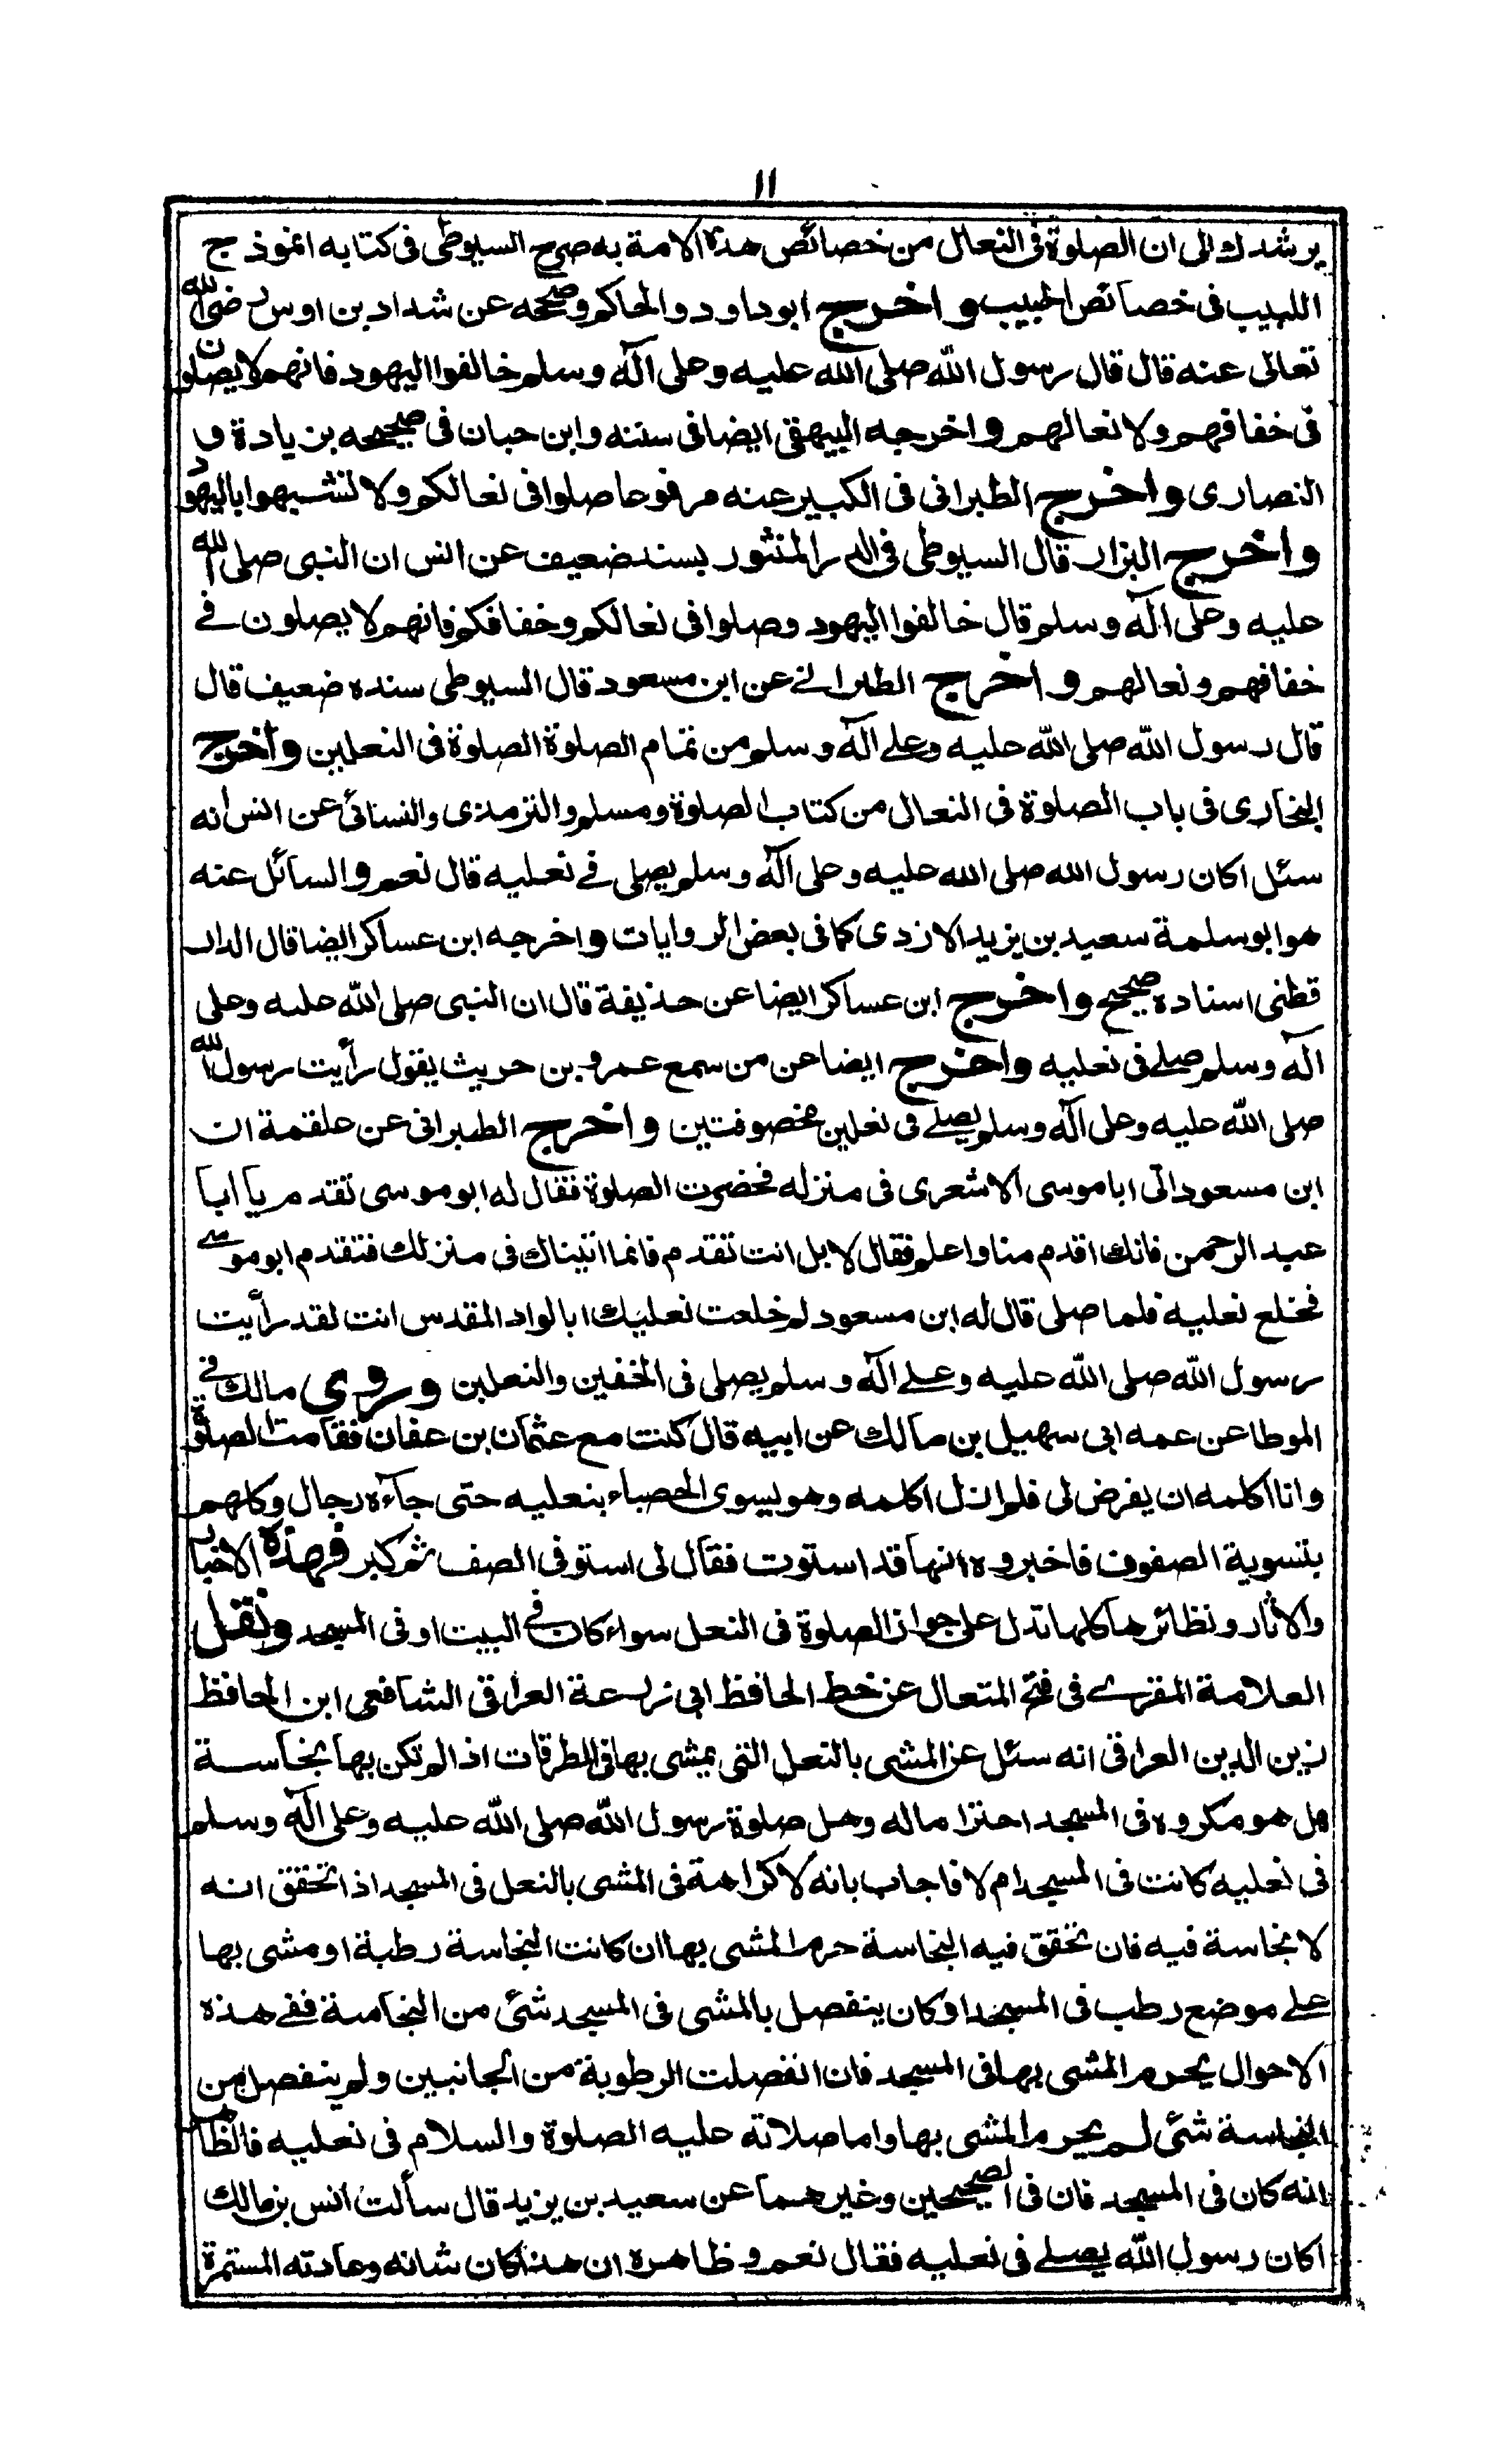 ١١
يرشدك الى ان الصلوة فى النعال من خصائص هذه الامة به صرح السيوطى فى كتابه انموذج
اللبيب فى خصائص الحبيب واخرج ابوداود والحاكم وصححه عن شداد بن اوس رضى الله
تعالى عنه قال قال رسول الله صلى الله عليه وعلى آله وسلم خالفوا اليهود فانهم لا يصلون
فى خفافهم ولا نعالهم واخرجه البيهقى ايضا فى سننه وابن حبان فى صحيحه بزيادة و
النصارى واخرج الطبرانى فى الكبير عنه مرفوعا صلوا فى نعالكم ولا تشبهوا باليهود
واخرج البزار قال السيوطى فى الدر المنثور بسند ضعيف عن انس ان النبى صلى الله
عليه وعلى آله وسلم قال خالفوا اليهود وصلوا فى نعالكم وخفافكم فانهم لا يصلون فے
خفافهم ونعالهم واخرج الطبرانے عن ابن مسعود قال السيوطى سنده ضعيف قال
قال رسول الله صلى الله عليه وعلے آله وسلم من تمام الصلوة الصلوة فى النعلين واخرج
البخارى فى باب الصلوة فى النعال من كتاب الصلوة ومسلم والترمذى والنسائى عن انس انه
سئل اكان رسول الله صلى الله عليه وعلى آله وسلم يصلى فے نعليه قال نعم والسائل عنه
هو ابو سلمة سعيد بن يزيد الازدى كما فى بعض الروايات واخرجه ابن عساكر ايضا قال الدار
قطنى اسناده صحيح واخرج ابن عساكر ايضا عن حذيفة قال ان النبى صلى الله عليه وعلى
آله وسلم صلے فى نعليه واخرج ايضا عن من سمع عمرو بن حريث يقول رأيت رسول الله
صلى الله عليه وعلى آله وسلم يصلے فى نعلين مخصوفتين واخرج الطبرانى عن علقمة ان
ابن مسعود اتى ابا موسى الاشعرى فى منزله فحضرت الصلوة فقال له ابو موسى تقدم يا ابا
عبد الرحمن فانك اقدم منا واعلم فقال لا بل انت تقدم فانما اتيناك فى منزلك فتقدم ابو موسے
فخلع نعليه فلما صلى قال له ابن مسعود لم خلعت نعليك ا بالواد المقدس انت لقد رأيت
رسول الله صلى الله عليه وعلے آله وسلم يصلى فى الخفين والنعلين وروى مالك فے
الموطا عن عمه ابى سهيل بن مالك عن ابيه قال كنت مع عثمان بن عفان فقامت الصلوة
وانا اكلمه ان يفرض لى فلم ازل اكلمه وهو يسوى الحصباء بنعليه حتى جآءه رجال وكلهم
بتسوية الصفوف فاخبروه انها قد استوت فقال لى استو فى الصف ثم كبر فهذه الاخبار
والآثار ونظائرها كلها تدل على جواز الصلوة فى النعل سواء كان فے البيت او فى المسجد ونقل
العلامة المقرے فى فتح المتعال عن خط الحافظ ابى زرعة العراقى الشافعى ابن الحافظ
زين الدين العراقى انه سئل عن المشى بالنعل التى يمشى بها فى الطرقات اذا لم تكن بها نجاسة
هل هو مكروه فى المسجد احتراما له وهل صلوة رسول الله صلى الله عليه وعلى آله وسلم
فى نعليه كانت فى المسجد ام لا فاجاب بانه لا كراهة فى المشى بالنعل فى المسجد اذا تحقق انه
لا نجاسة فيه فان تحقق فيه النجاسة حرم المشى بها ان كانت النجاسة رطبة او مشى بها
علے موضع رطب فى المسجد او كان ينفصل بالمشى فى المسجد شئ من النجاسة ففے هذه
الاحوال يحرم المشى بها فى المسجد فان انفصلت الرطوبة من الجانبين ولم ينفصل من
النجاسة شئ لم يحرم المشى بها واما صلاته عليه الصلوة والسلام فى نعليه فالظاهر
انه كان فى المسجد فان فى الصحيحين وغيرهما عن سعيد بن يزيد قال سألت انس بن مالك
اكان رسول الله يصلے فى نعليه فقال نعم وظاهره ان هذا كان شانه وعادته المستمرة